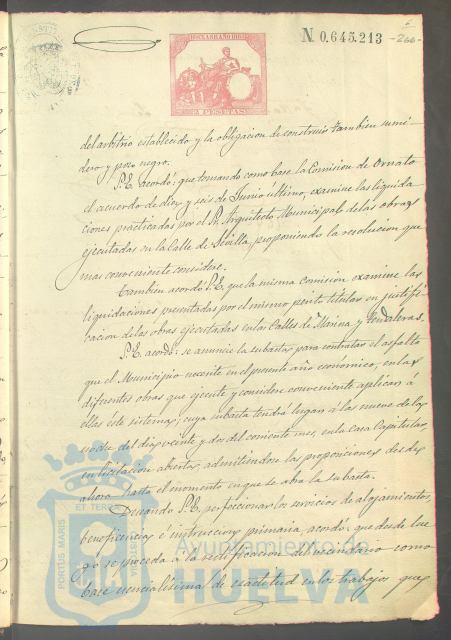 N. 0.645.213
-266-
2 PESETAS
del arbitrio establecido y la obligacion de construir tambien sumi-
dero y pozo negro.
S.E. acordó: que tomando como base la Comision de Ornato
el acuerdo de diez y seis de Junio último, examine las liquida
ciones practicadas por el Sr. Arquitecto Municipal de las obras
ejecutadas en la Calle de Sevilla, proponiendo la resolucion que
mas conveniente considere.
Tambien acordó S.E. que la misma Comision examine las
liquidaciones presentadas por el mismo perito titular en justifi-
cacion de las obras ejecutadas en las Calles de Marina y Tendaleras.
S.E. acordó: se anuncie la subasta para contratar el asfalto
que el Municipio necesite en el presente año económico, en las
diferentes obras que ejecute y considere conveniente aplicar á
ellas éste sistema; cuya subasta tendrá lugar á las nueve de la
noche del dia veinte y dos del corriente mes, en la Casa Capitular,
en licitacion abierta, admitiéndose las proposiciones desde
ahora hasta el momento en que se abra la subasta.
Deseando S.E. perfeccionar los servicios de alojamientos,
beneficencia é instruccion primaria, acordó: que desde lue
go se proceda á la rectificacion del vecindario como
base esencialísima de exactitud en los trabajos que
PORTUS MARIS
ET TERRAE
CUSTODIA
Ayuntamiento de
HUELVA